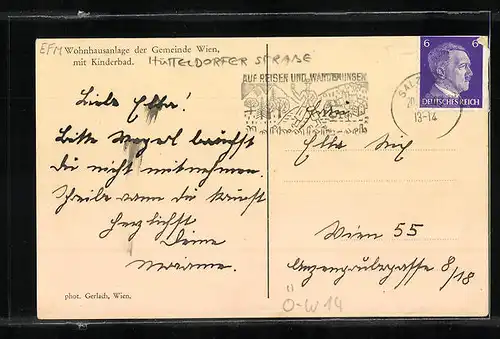 EFM Wohnhausanlage der Gemeinde Wien,
mit Kinderbad. HÜTTELDORFER STRAßE
Liebe Elsa!
Bitte Mogerl brauchst
Du nicht mitnehmen.
Theile wann du kommst
Herzlichst
Deine
phot. Gerlach, Wien.
AUF REISEN UND WANDERUNGEN
6 6
DEUTSCHES REICH
SALZ
20
13-14
Elsa
Wien 55
8/18
Ö-W14